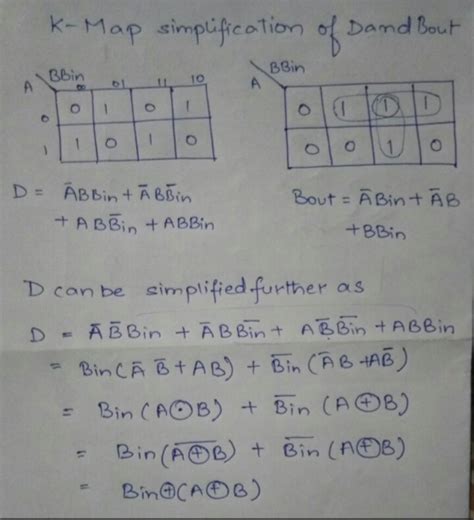 K-Map simplification of D and Bout
A\BBin 00 01 11 10
0 0 1 0 1
1 1 0 1 0
A\BBin
0 1 1 1
0 0 1 0
D = ĀBBin + ĀBB̅i̅n̅
+ ABB̅i̅n̅ + ABBin
Bout = ĀBin + ĀB
+BBin
D can be simplified further as
D = ĀB̅Bin + ĀBB̅i̅n̅ + AB̅B̅i̅n̅ + ABBin
= Bin(ĀB̅ + AB) + B̅i̅n̅ (ĀB + AB̅)
= Bin (A⊙B) + B̅i̅n̅ (A⊕B)
= Bin (A̅⊕̅B̅) + B̅i̅n̅ (A⊕B)
= Bin⊕(A⊕B)